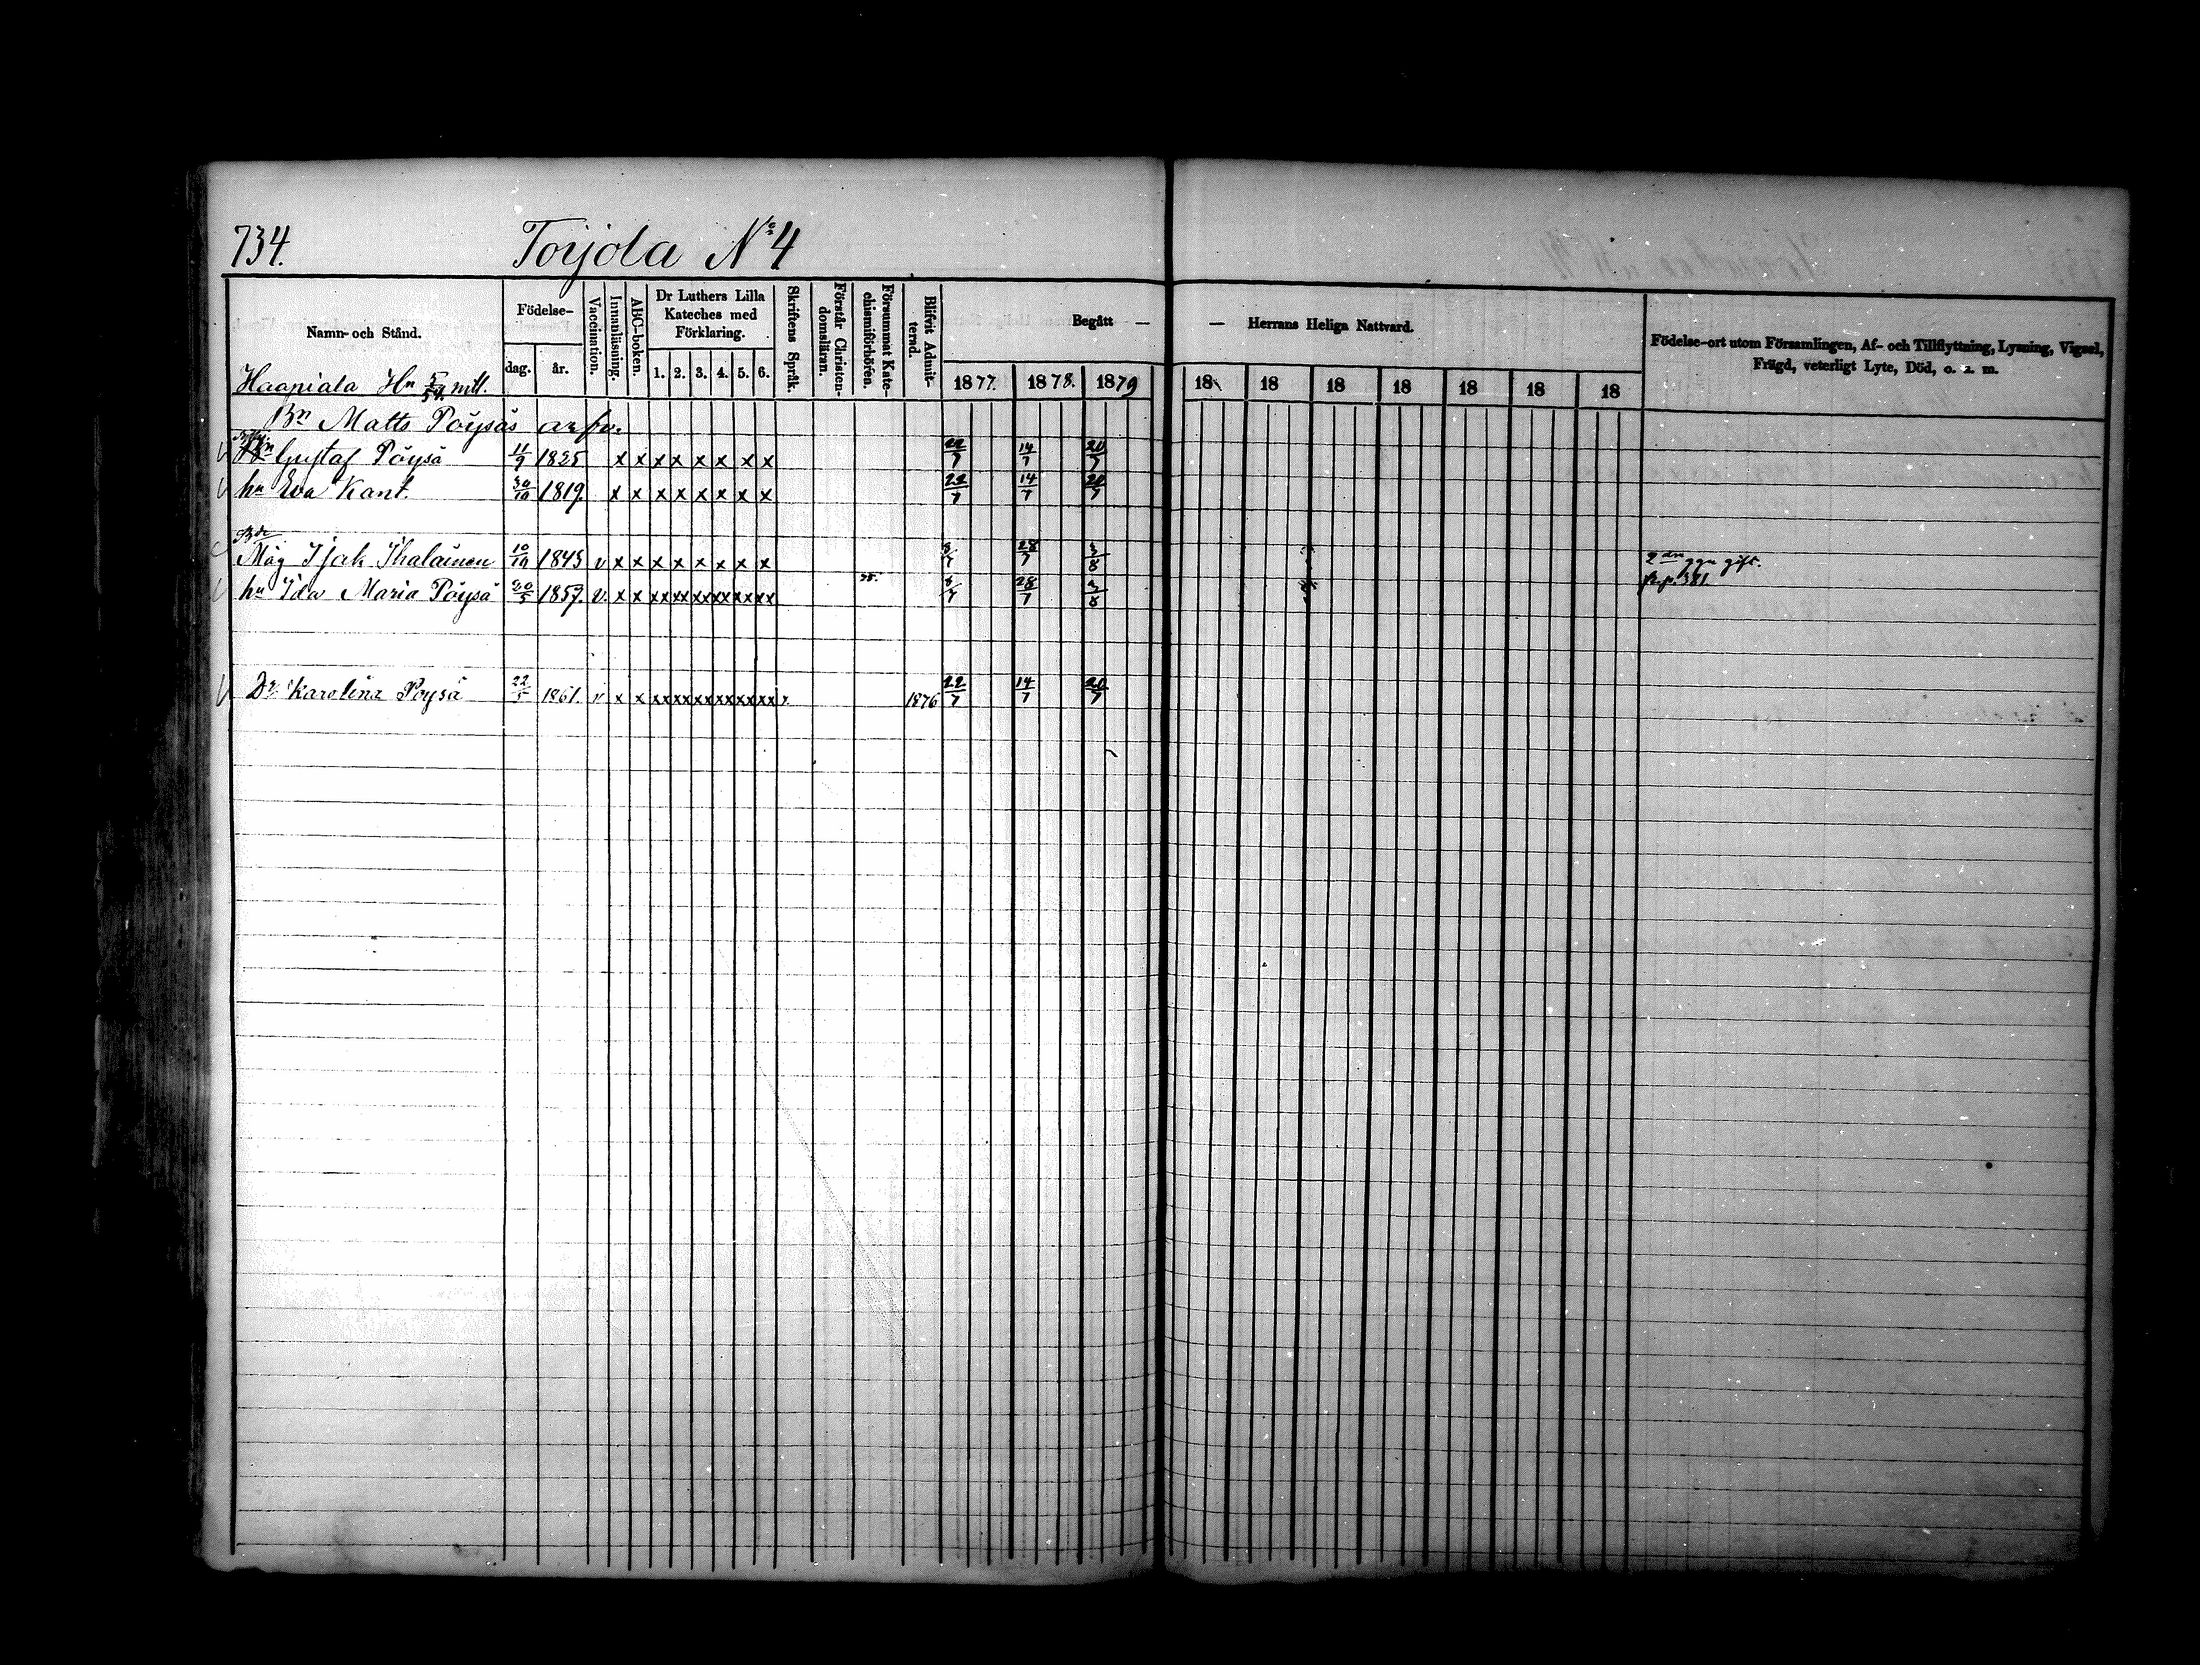 734. Torjola No 4
Namn- och Stånd. Födelse- dag. år. Vaccination. Innanläsning. ABC-boken. Dr Luthers Lilla Kateches med Förklaring. 1. 2. 3. 4. 5. 6. Skriftens Språk. Förstår Christendomsläran. Försummat Katechismiförhören. Blifvit Admitterad. Begått — — Herrans Heliga Nattvard. 1877. 1878. 1879 18 18 18 18 18 18 18 Födelse-ort utom Församlingen, Af- och Tillflyttning, Lysning, Vigsel, Frägd, veterligt Lyte, Död, o. s. m.
Haapiala Hn 5/54 mtl.
Bn Matts Pöysäs arfv.
Gustaf Pöysä 11/9 1825 x x x x x x x x 22/7 14/7 20/7
hu Eva Kant. 30/10 1819. x x x x x x x x 22/7 14/7 20/7
Måg Isak Ihalainen 10/10 1843 v x x x x x x x x 8/7 28/7 3/8 2dra ggn gift.
hu Ida Maria Pöysä 20/5 1857. v. x x xx xx xx xx xx xx 8/7 28/7 3/8
Dr. Karolina Pöysä 22/5 1861. v x x xx xx xx xx xx xx 1876 22/7 14/7 20/7